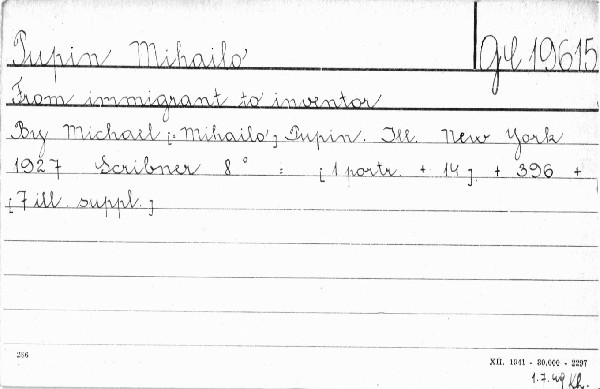 Pupin Mihailo
gl 19615
From immigrant to inventor
By Michael [: Mihailo] Pupin. Ill. New York
1927 Scribner 8° : [1 portr. + 14] + 396 +
[7 ill. suppl.]
266
XII. 1941 - 30,000 - 2297
1.7.49 Kh.